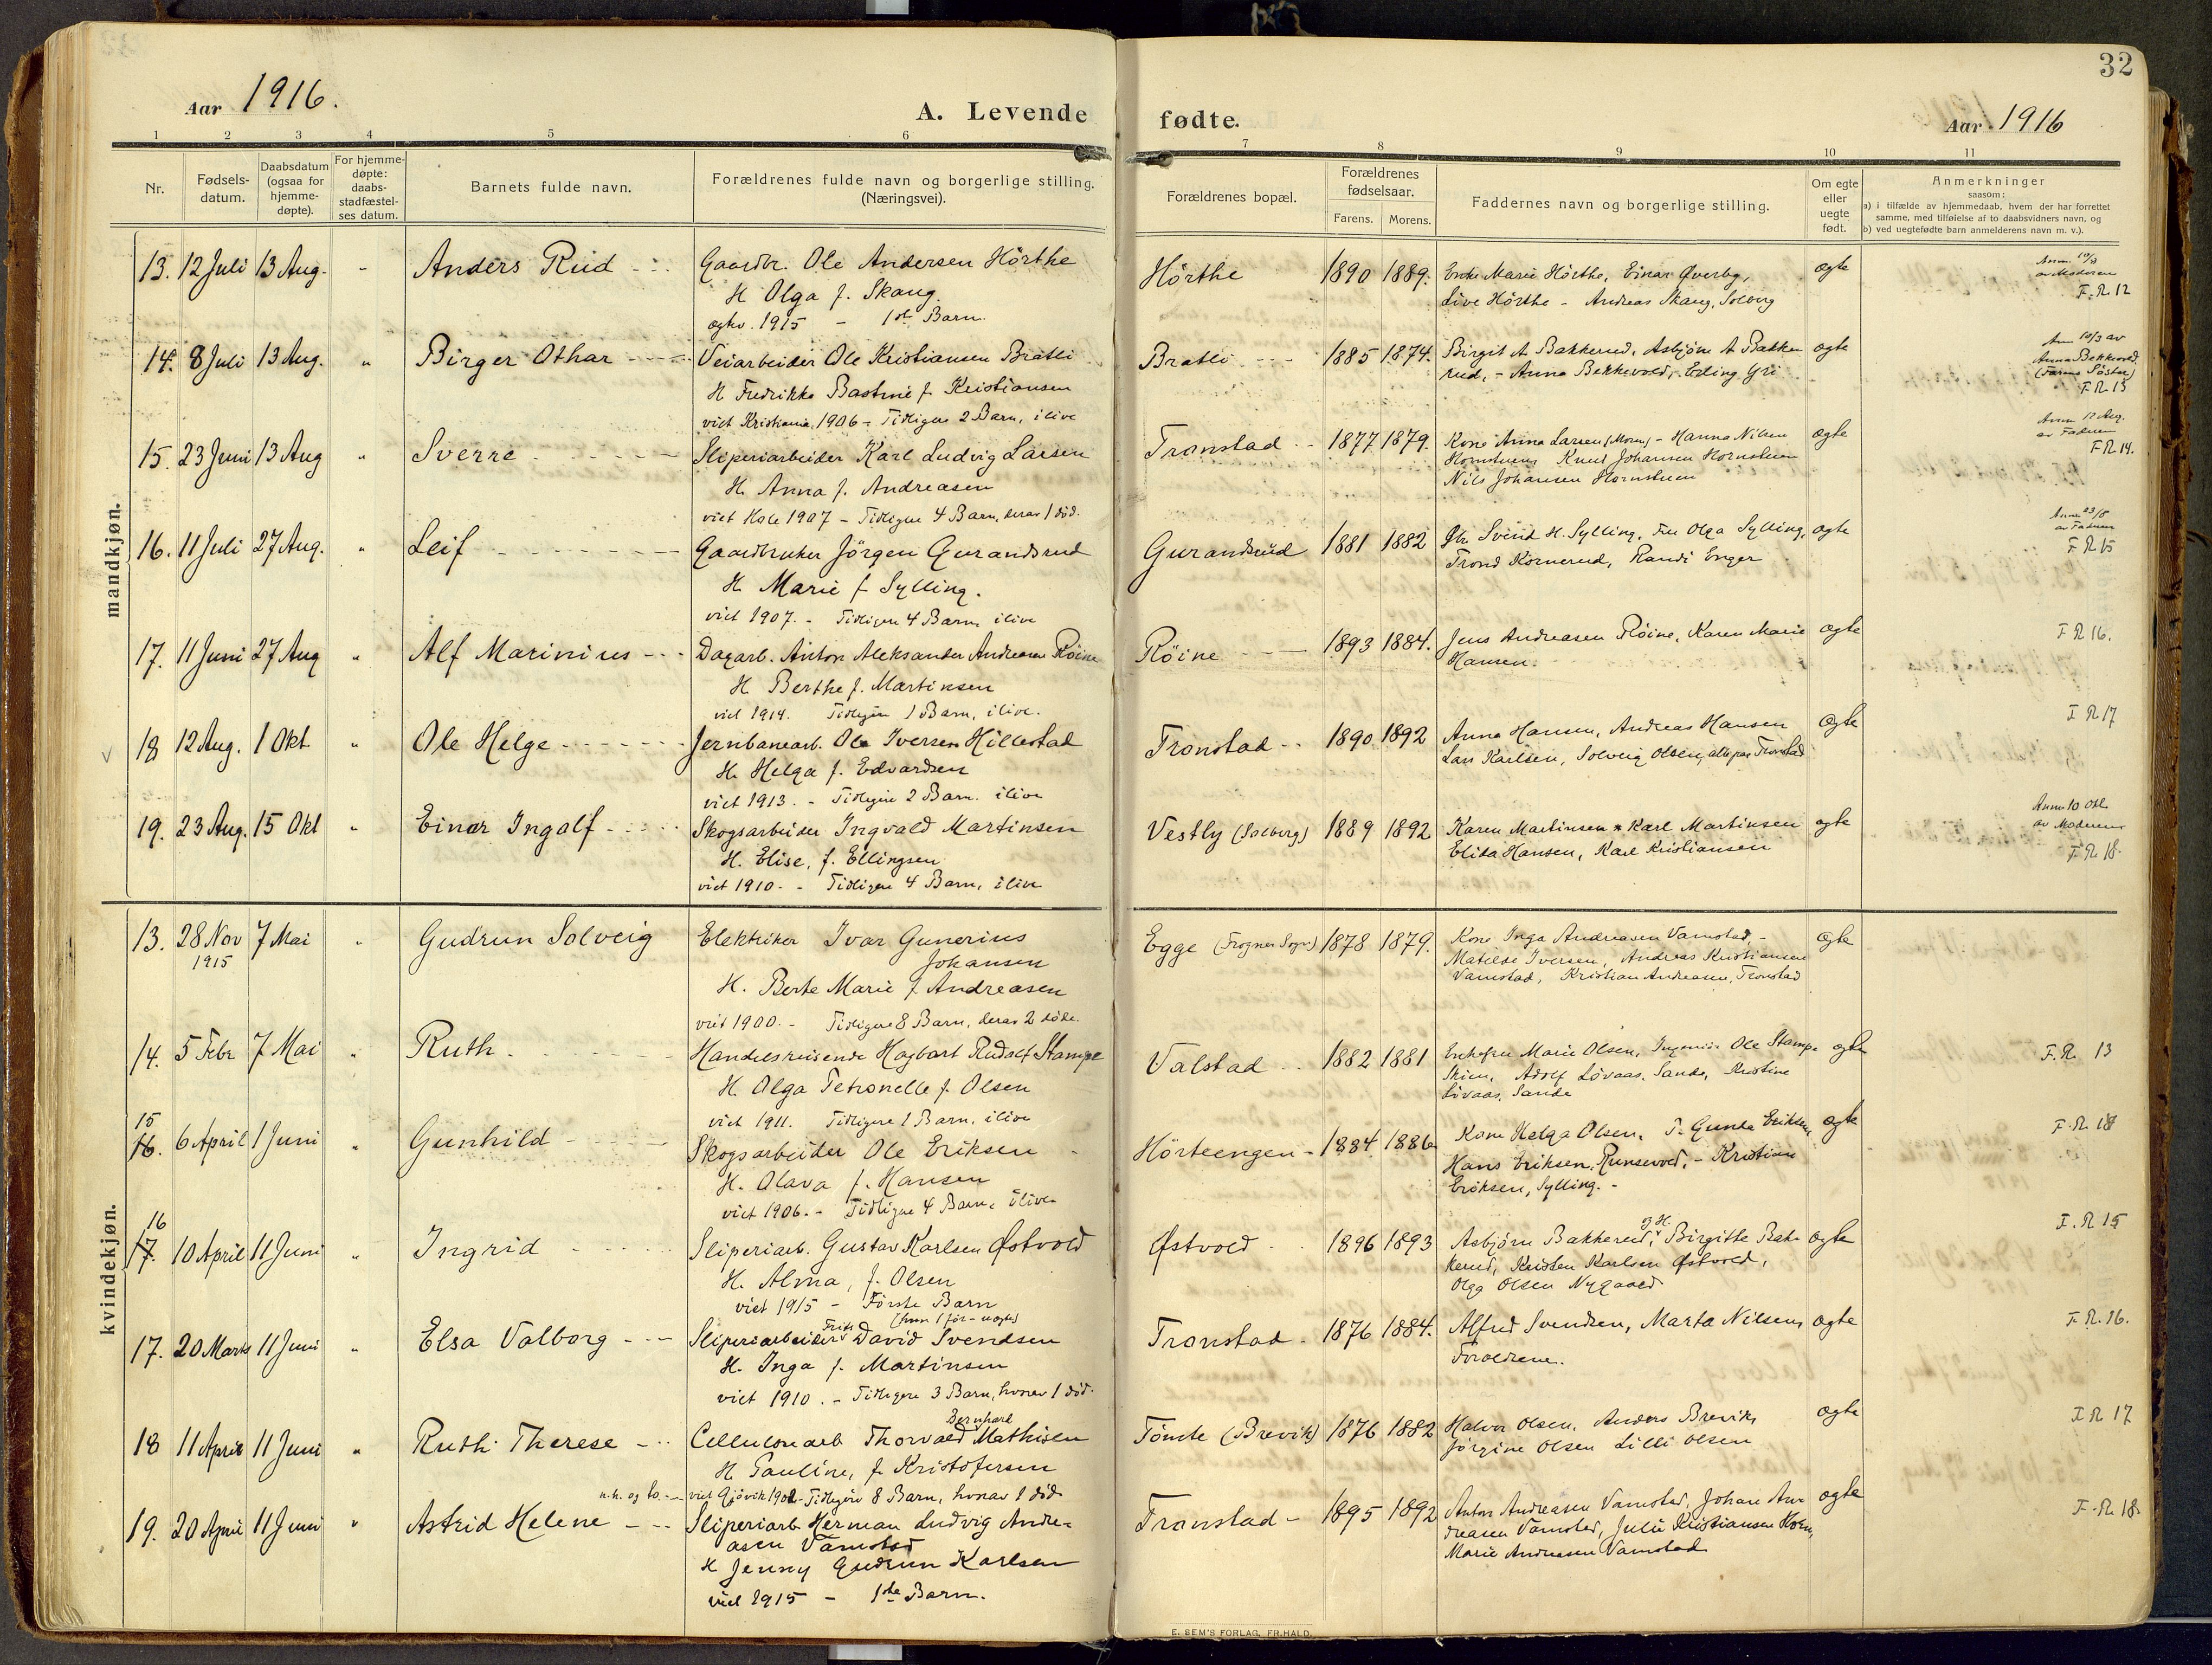 32
Aar 1916.
A. Levende fødte.
Aar 1916
1 2 3 4 5 6 7 8 9 10 11
Nr.
Fødsels-
datum.
Daabsdatum
(ogsaa for
hjemme-
døpte).
For hjemme-
døpte:
daabs-
stadfæstel-
ses datum.
Barnets fulde navn.
Forældrenes fulde navn og borgerlige stilling.
(Næringsvei).
Forældrenes bopæl.
Forældrenes
fødselsaar.
Farens. Morens.
Faddernes navn og borgerlige stilling.
Om egte
eller
uegte
født.
Anmerkninger
saasom:
a) i tilfælde av hjemmedaab, hvem der har forrettet
samme, med tilføielse af to daabsvidners navn, og
b) ved uegtefødte barn anmelderens navn m. v.).
mandkjøn.
13. 12 Juli 13 Aug. - Anders Rud - Gaardbr. Ole Andersen Hörthe
H Olga f. Skaug.
egtev. 1915 - 1ste Barn.
Hörthe 1890 1889. Enke Marie Hörthe, Einar Øverby,
Live Hörthe - Andreas Skaug, Solberg
egte
Anm. 10/8
av Moderen
F. R. 12
14. 8 Juli 13 Aug. " Birger Othar - Veiarbeider Ole Kristiansen Bratli
H Fredrikke Bastine f. Kristiansen
viet Kristiania 1906 - Tidligere 2 Barn, ilive
Bratli 1885 1874. Birgit A Bakkerud, Asbjörn A Bakke
rud, - Anna Bekkevold, Erling Gri
egte
Anna Bekkevold
(Farens Söster)
F. R. 13
15. 23 Juni 13 Aug " Sverre - Sliperiarbeider Karl Ludvig Larsen
H. Anna f. Andreasen
viet Hole 1907 - Tidligere 4 Barn, derav 1 död.
Tronstad 1877 1879. Kone Anna Larsen (Moren) - Hanna Nilsen
Hornstuen Knut Johansen Hornstuen
Nils Johansen Hornstuen
egte
Anm. 12 Aug.
av Faderen
F R 14.
16. 11 Juli 27 Aug. " Leif - Gaardbruker Jörgen Gurandsrud
H. Marie f Sylling.
viet 1907. - Tidligere 4 Barn, ilive
Gurandsrud 1881 1882 Gbr Svend H. Sylling, Fru Olga Sylling,
Trond Kornerud, Randi Enger
egte
Anm 23/8
av Faderen
F R 15
17. 11 Juni 27 Aug " Alf Marinius - Dagarb. Anton Aleksander Andreasen Röine
H Berthe f. Martinsen
viet 1914. Tidligere 1 Barn, ilive.
Röine 1893 1884. Jens Andreasen Röine, Karen Marie
Hansen.
egte
F R 16.
18 12 Aug. 1 Okt " Ole Helge - Jernbanearb. Ole Iversen Hillestad
H. Helga f. Edvardsen
viet 1913. - Tidligere 2 Barn. ilive
Tronstad 1890 1892 Anna Hansen, Andreas Hansen
Lars Karlsen, Solveig Olsen, alle paa Tronstad
egte
F R 17
19. 23 Aug. 15 Okt " Einar Ingolf - Skogsarbeider Ingvald Martinsen
H. Elise, f. Ellingsen
viet 1910. - Tidligere 4 Barn, ilive
Vestly (Solberg) 1889 1892 Karen Martinsen, Karl Martinsen
Elida Hansen, Karl Kristiansen
egte
Anm 10 Okt
av Moderen
F. R. 18.
kvindekjøn.
13. 28 Nov 7 Mai " Gudrun Solveig Elektriker Ivar Gunerius
1915
Johansen
H. Berte Marie f Andreasen
viet 1900. - Tidligere 8 Barn, derav 2 döde.
Egge (Frogner Sogn) 1878 1879. Kone Inga Andreasen Vamstad, -
Matilde Iversen, Andreas Kristiansen
Vamstad, Kristian Andreasen, Tronstad
egte
14. 5 Febr 7 Mai " Ruth. Handelsreisende Hagbart Rudolf Stampe
H. Olga Petronelle f. Olsen
viet 1911. Tidligere 1 Barn, ilive
Valstad 1882 1881 Enkefru Marie Olsen, Ingeniör Ole Stampe
Skien, Adolf Lövaas, Sande, Kristine
Lövaas, Sande
egte
F. R. 13
15
16. 6 April 1 Juni " Gunhild - Skogsarbeider Ole Eriksen
H. Olava f. Hansen
viet 1906. - Tidligere 4 Barn, ilive
Hörteengen 1884 1886 Kone Helga Olsen, P. Gunda Eriksen,
Hans Eriksen, Runsevold, - Kristian
Eriksen, Sylling. -
egte
F. R. 14
16
17. 10 April 11 Juni " Ingrid Sliperiarb. Gustav Karlsen Østvold
H. Alma, f. Olsen
viet 1915 - Förste Barn
(hun 1 för-uegte)
Østvold 1896 1893 Asbjörn Bakkerud, og H. Birgitte Bak-
kerud, Kristen Karlsen Østvold,
Olga Olsen Nygaard
egte
F. R 15
17. 20 Marts 11 Juni " Elsa Valborg - Sliperiarbeider Frits David Svendsen
H. Inga f. Martinsen
viet 1910. - Tidligere 3 Barn, hvorav 1 död.
Tronstad 1876 1884. Alfred Svendsen, Marta Nilsen
Foreldrene.
egte
F. R. 16.
18 11 April 11 Juni " Ruth Therese - Cellulosearb Thorvald Bernhard Mathisen
H Pauline, f. Kristofersen
viet Gjövik 1902 - Tidligere 8 Barn, hvorav 1 död
Tömte (Brevik) 1876 1882 Halvor Olsen, Anders Brevik
Jörgine Olsen Lilli Olsen
egte
F. R 17
19. 20 April 11 Juni " Astrid Helene - Sliperiarb. Herman Ludvig Andre-
asen Vamstad
H Jenny Gudrun Karlsen
viet 1915 - 1ste Barn.
Tronstad - 1895 1892 Anton Andreasen Vamstad, Johan An-
dreasen Vamstad, Julie Kristiansen Horn,
Marie Andreasen Vamstad
egte
F. R. 18.
E. SEM'S FORLAG, FR.HALD.